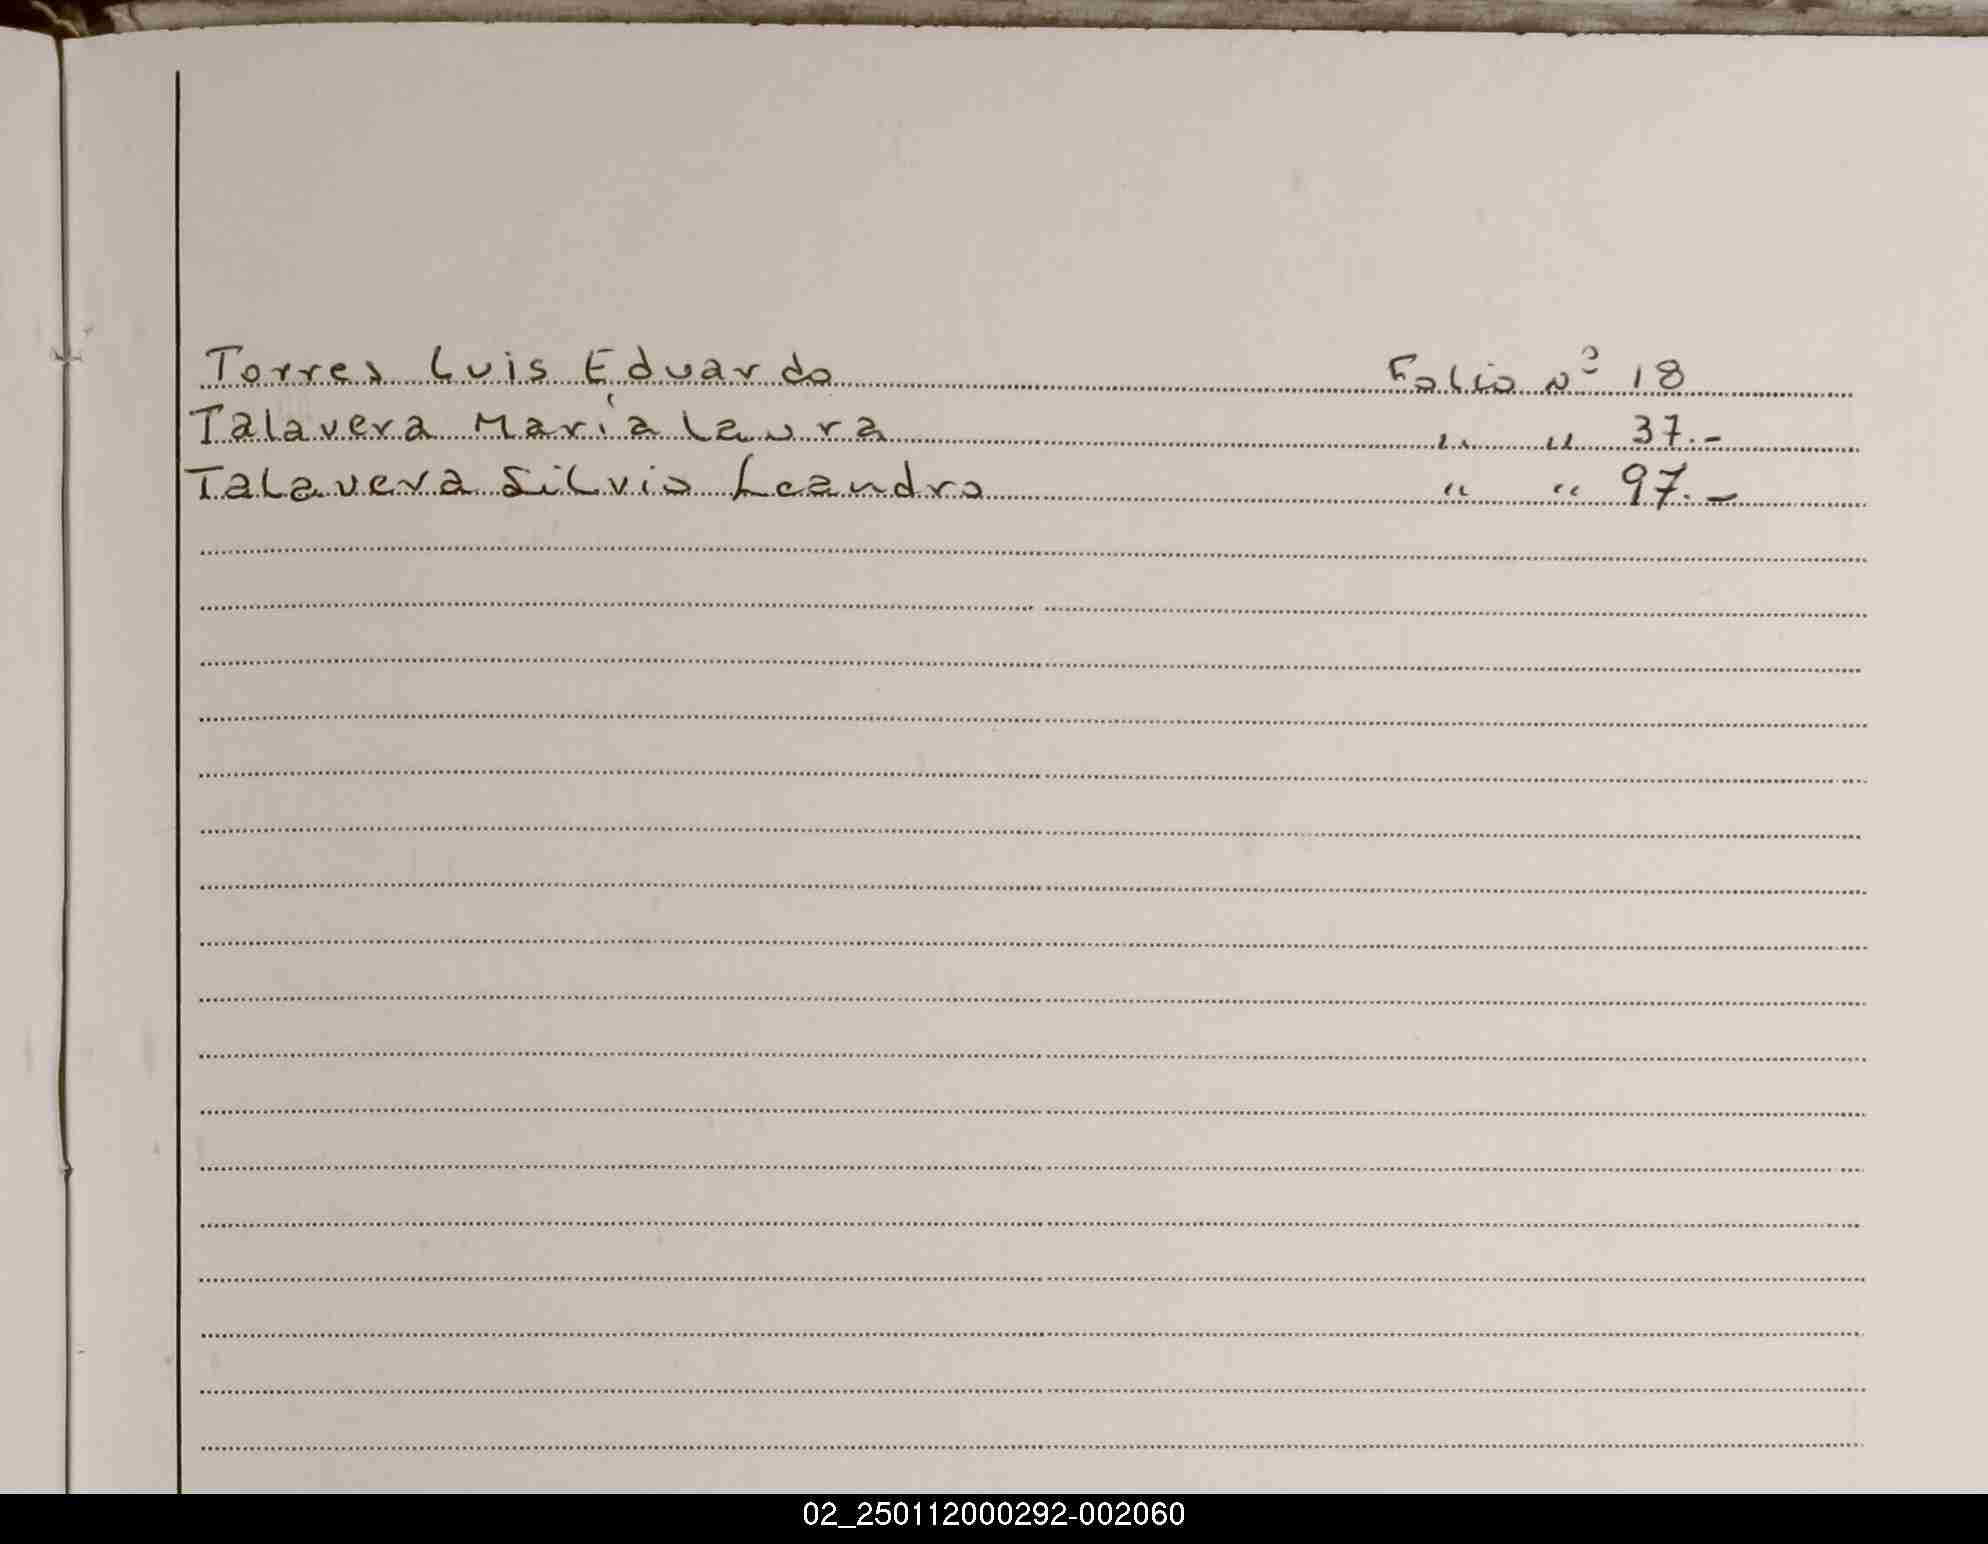 Torres Luis Eduardo Folio Nº 18
Talavera María Laura " " 37.-
Talavera Silvio Leandro " " 97.-
02_250112000292-002060